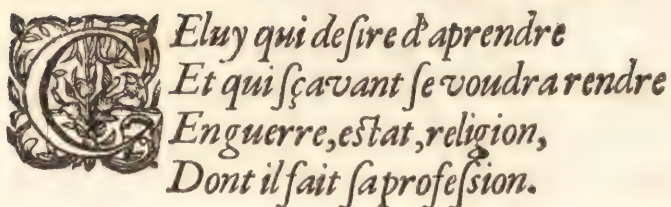 CEluy qui deſire d'aprendre
Et qui ſçavant ſe voudra rendre
En guerre, eſtat, religion,
Dont il fait ſa profeſsion.